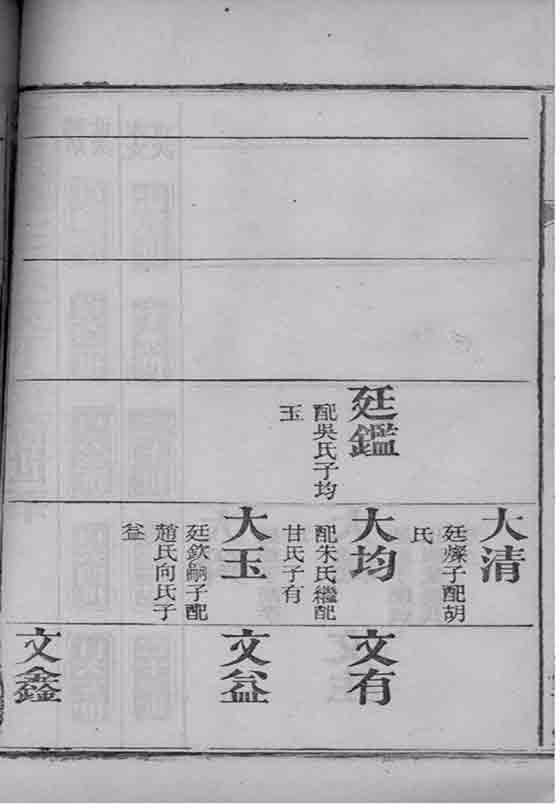 廷鑑
配吳氏子均
玉
大清
廷燦子配胡
氏
大均
配朱氏繼配
甘氏子有
大玉
廷欽嗣子配
趙氏向氏子
益
文有
文益
文鑫